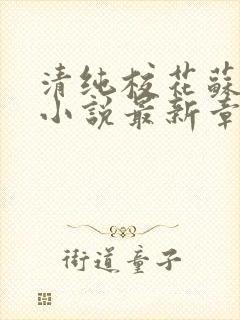 清纯校花蘇
小說最新章
街道童子